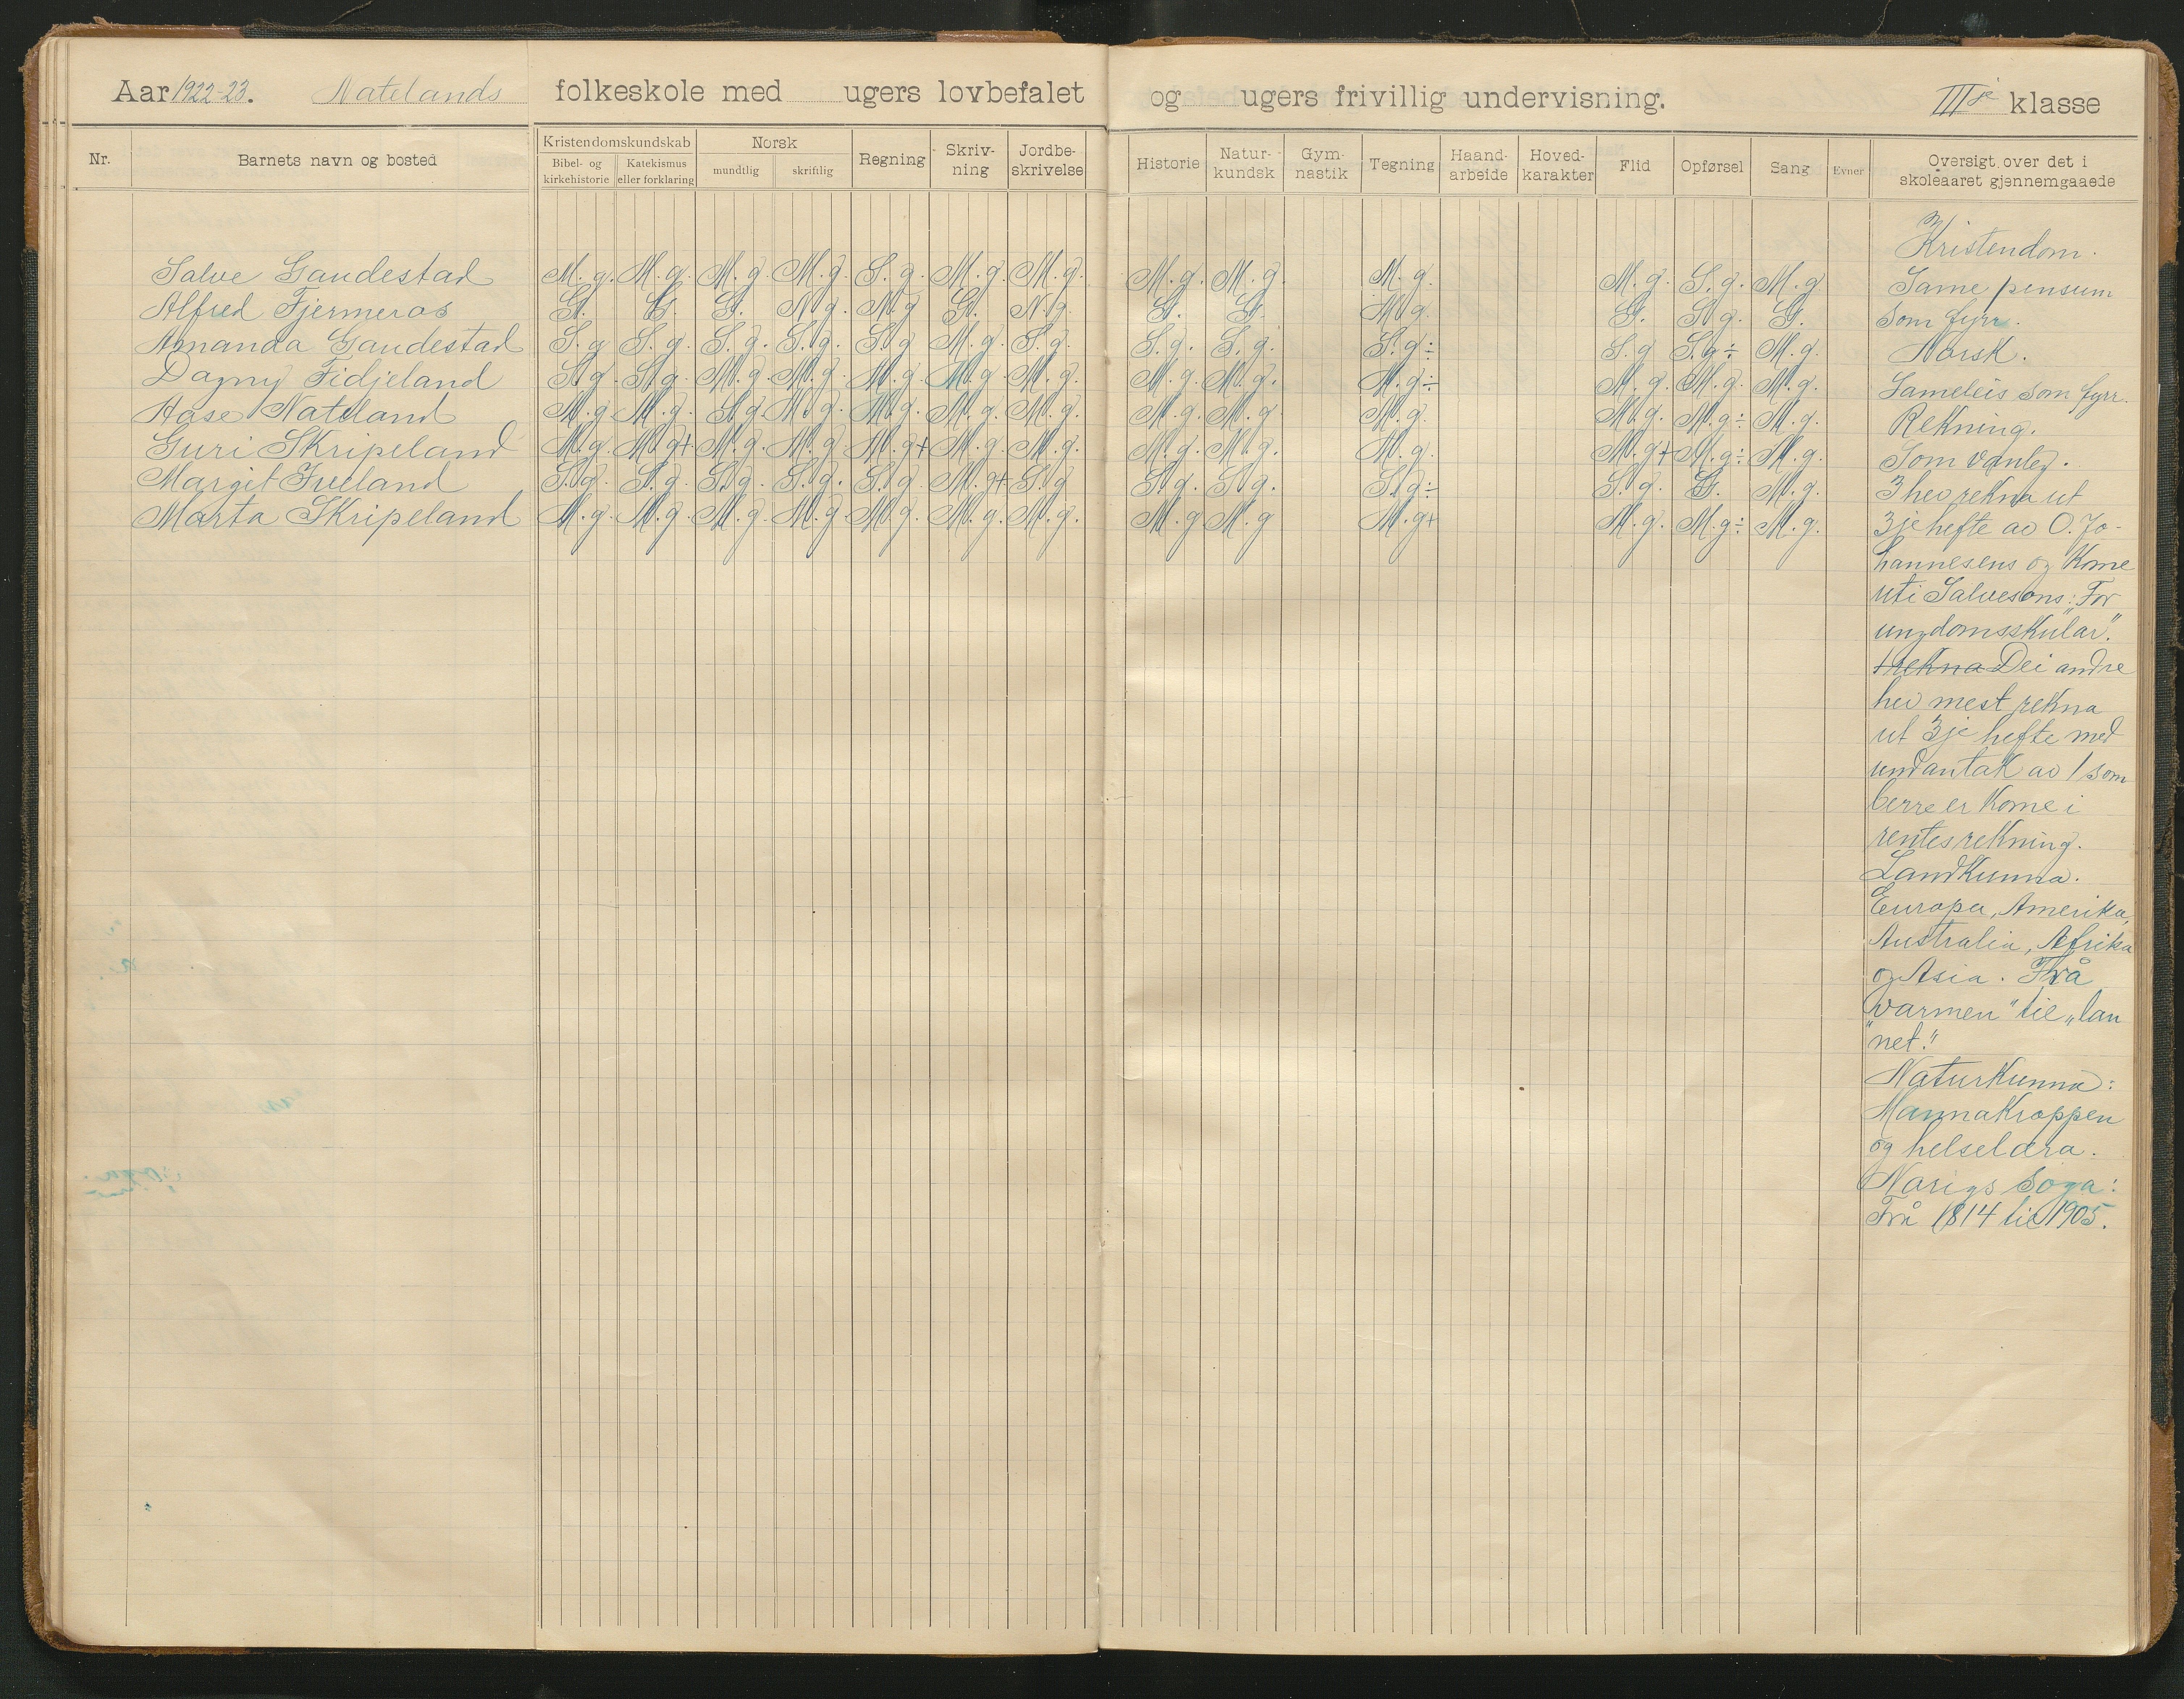 Aar 1922-23. Natelands folkeskole med ugers lovbefalet og ugers frivillig undervisning. III je klasse
Nr. Barnets navn og bosted Kristendomskundskab Bibel- og kirkehistorie Katekismus eller forklaring Norsk mundtlig skriftlig Regning Skriv-ning Jordbe-skrivelse Historie Natur-kundsk Gym-nastik Tegning Haand-arbeide Hoved-karakter Flid Opførsel Sang Evner Oversigt over det i skoleaaret gjennemgaaede
Salve Gaudestad M.g. M.g. M.g. M.g. S.g. M.g. M.g. M.g. M.g. M.g. M.g. S.g. M.g
Alfred Fjermeros G. G. G. N.g. N.g G. N.g. G. G. M.g. G. S.g. G.
Amanda Gaudestad S.g S.g. S.g. S.g. S.g M.g. S.g. S.g. S.g. S.g÷ S.g S.g÷ M.g.
Dagny Fidjeland S.g. S.g. M.g. M.g. M.g. M.g. M.g. M.g. M.g. M.g÷ M.g. M.g. M.g.
Aase Nateland M.g. M.g. S.g. M.g. M.g. M.g. M.g. M.g. M.g. M.g. M.g. M.g÷ M.g.
Guri Skripeland M.g. M.g+ M.g. M.g. M.g+ M.g. M.g. M.g. M.g. M.g. M.g+ M.g÷ M.g.
Margit Iveland S.g. S.g. S.g. S.g. S.g. M.g+ S.g S.g. S.g. S.g÷ S.g. G. M.g.
Marta Skripeland M.g. M.g. M.g. M.g. M.g. M.g. M.g. M.g M.g M.g+ M.g. M.g÷ M.g.
Kristendom.
Same pensum
som fyrr.
Norsk.
Sameleis som fyrr.
Rekning.
Som vanleg.
3 hev rekna ut
3je hefte av O. Jo-
hannesens og kome
uti Salvesons: "For
ungdomsskular".
rekna Dei andre
hev mest rekna
ut 3je hefte med
undantak av 1 som
berre er kome i
rentesrekning.
Landkunna.
Europa, Amerika,
Australia, Afrika
og Asia. Frå
"varmen" til "lan
net."
Naturkunna:
Mannakroppen
og helselæra.
Norigs soga:
Frå 1814 til 1905.